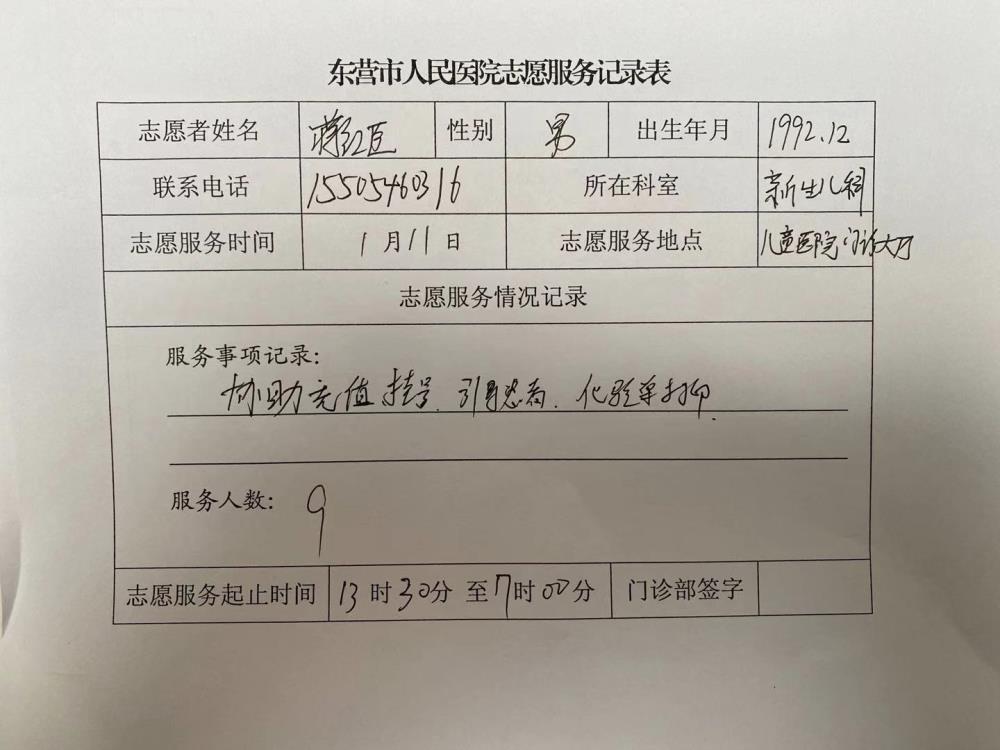 东营市人民医院志愿服务记录表
志愿者姓名 蒋红臣 性别 男 出生年月 1992.12
联系电话 15505460316 所在科室 新生儿科
志愿服务时间 1月11日 志愿服务地点 儿童医院门诊大厅
志愿服务情况记录
服务事项记录:
协助充值挂号、引导患者、化验单打印.
服务人数: 9
志愿服务起止时间 13时30分 至17时00分 门诊部签字